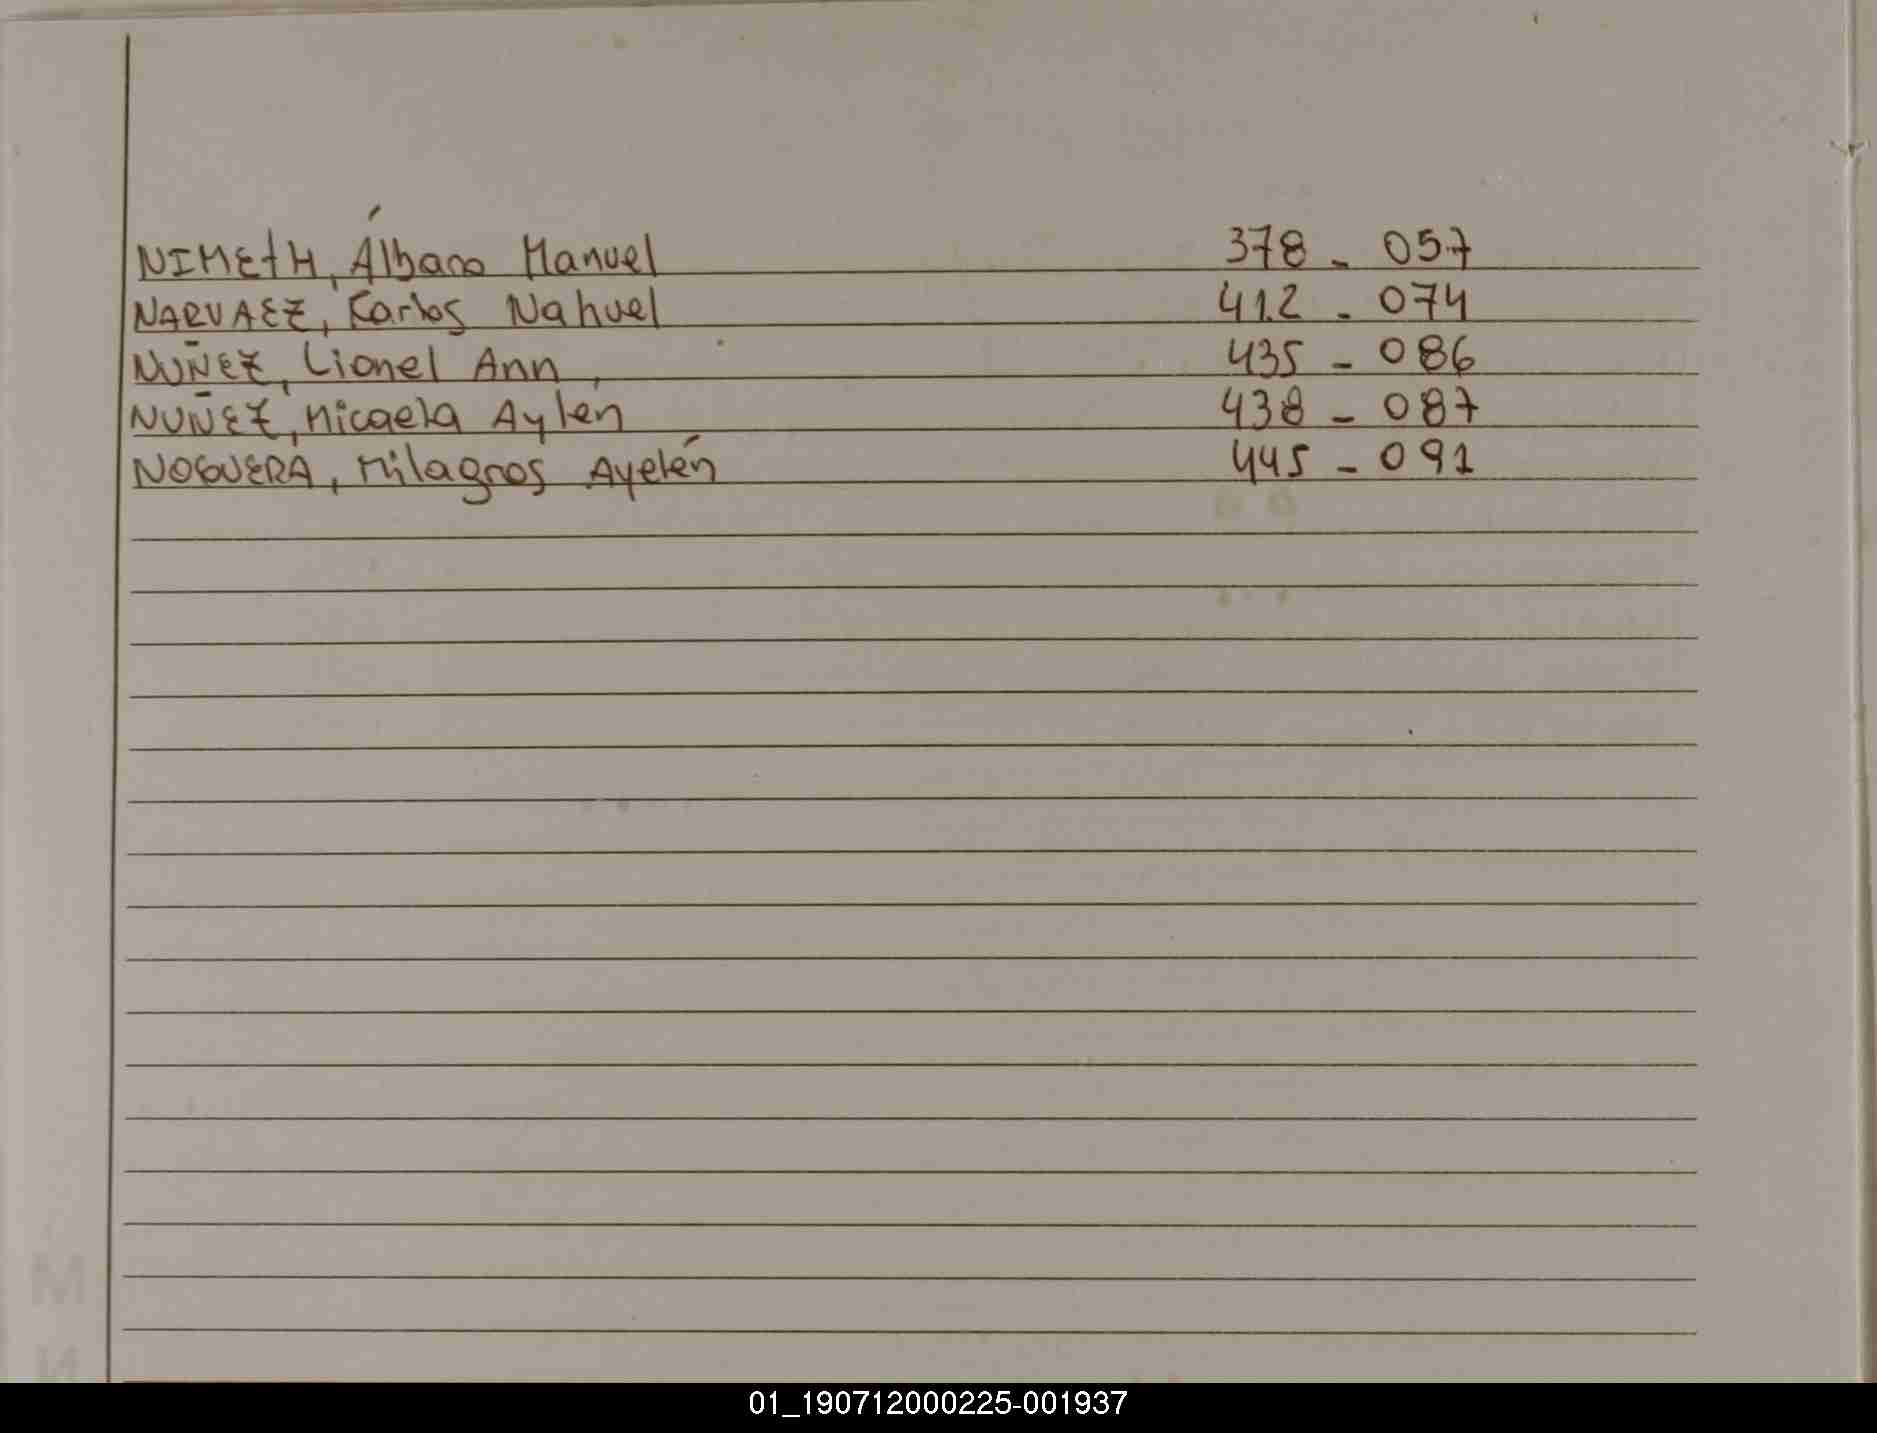 NIMEtH, Álbano Manuel 378 - 057
NARVAEZ, Karlos Nahuel 412 - 074
NUÑEZ, Lionel Ann, 435 - 086
NUÑEZ, Micaela Aylen 438 - 087
NOGUERA, Milagros Ayelén 445 - 091
M
N
01_190712000225-001937